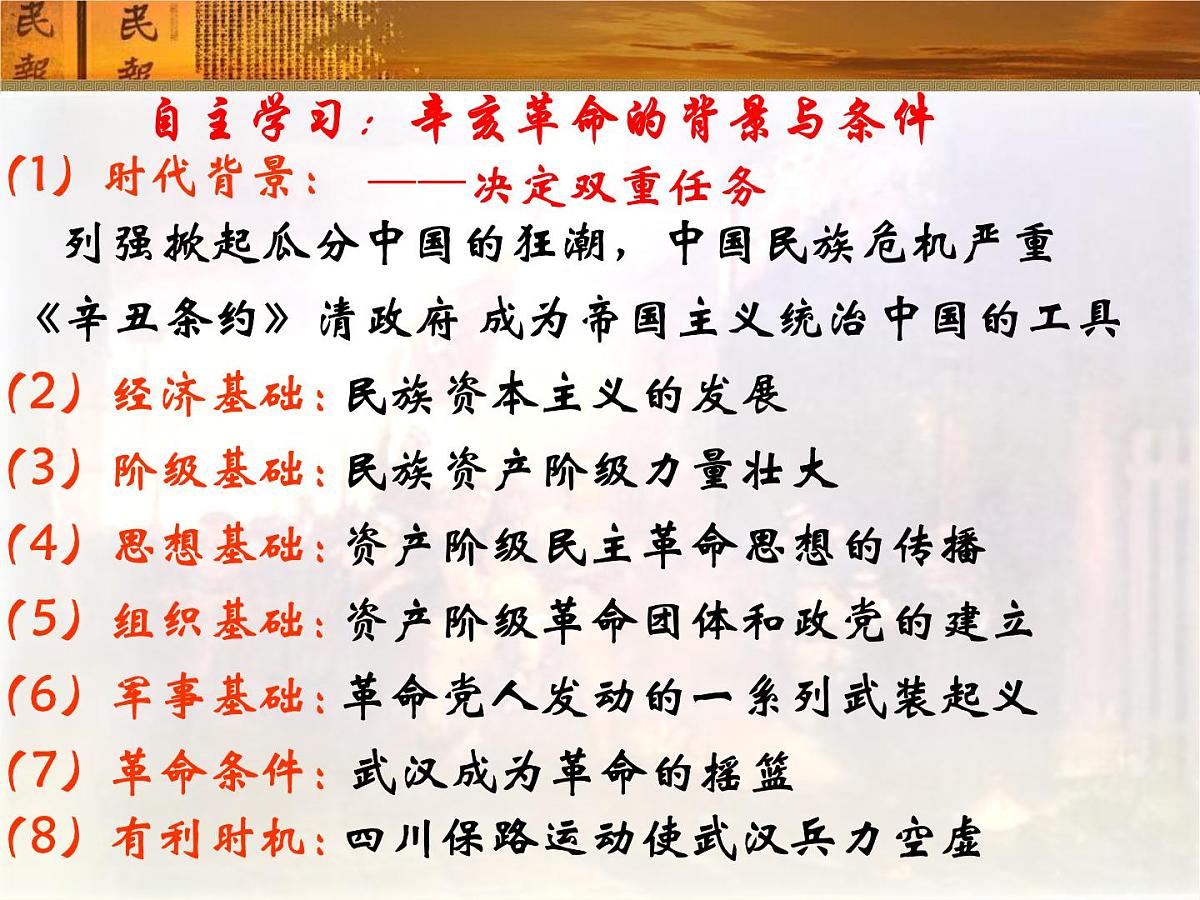 民 民
報 報
自主学习：辛亥革命的背景与条件
(1) 时代背景： ——决定双重任务
列强掀起瓜分中国的狂潮，中国民族危机严重
《辛丑条约》清政府 成为帝国主义统治中国的工具
(2) 经济基础：民族资本主义的发展
(3) 阶级基础：民族资产阶级力量壮大
(4) 思想基础：资产阶级民主革命思想的传播
(5) 组织基础：资产阶级革命团体和政党的建立
(6) 军事基础：革命党人发动的一系列武装起义
(7) 革命条件：武汉成为革命的摇篮
(8) 有利时机：四川保路运动使武汉兵力空虚